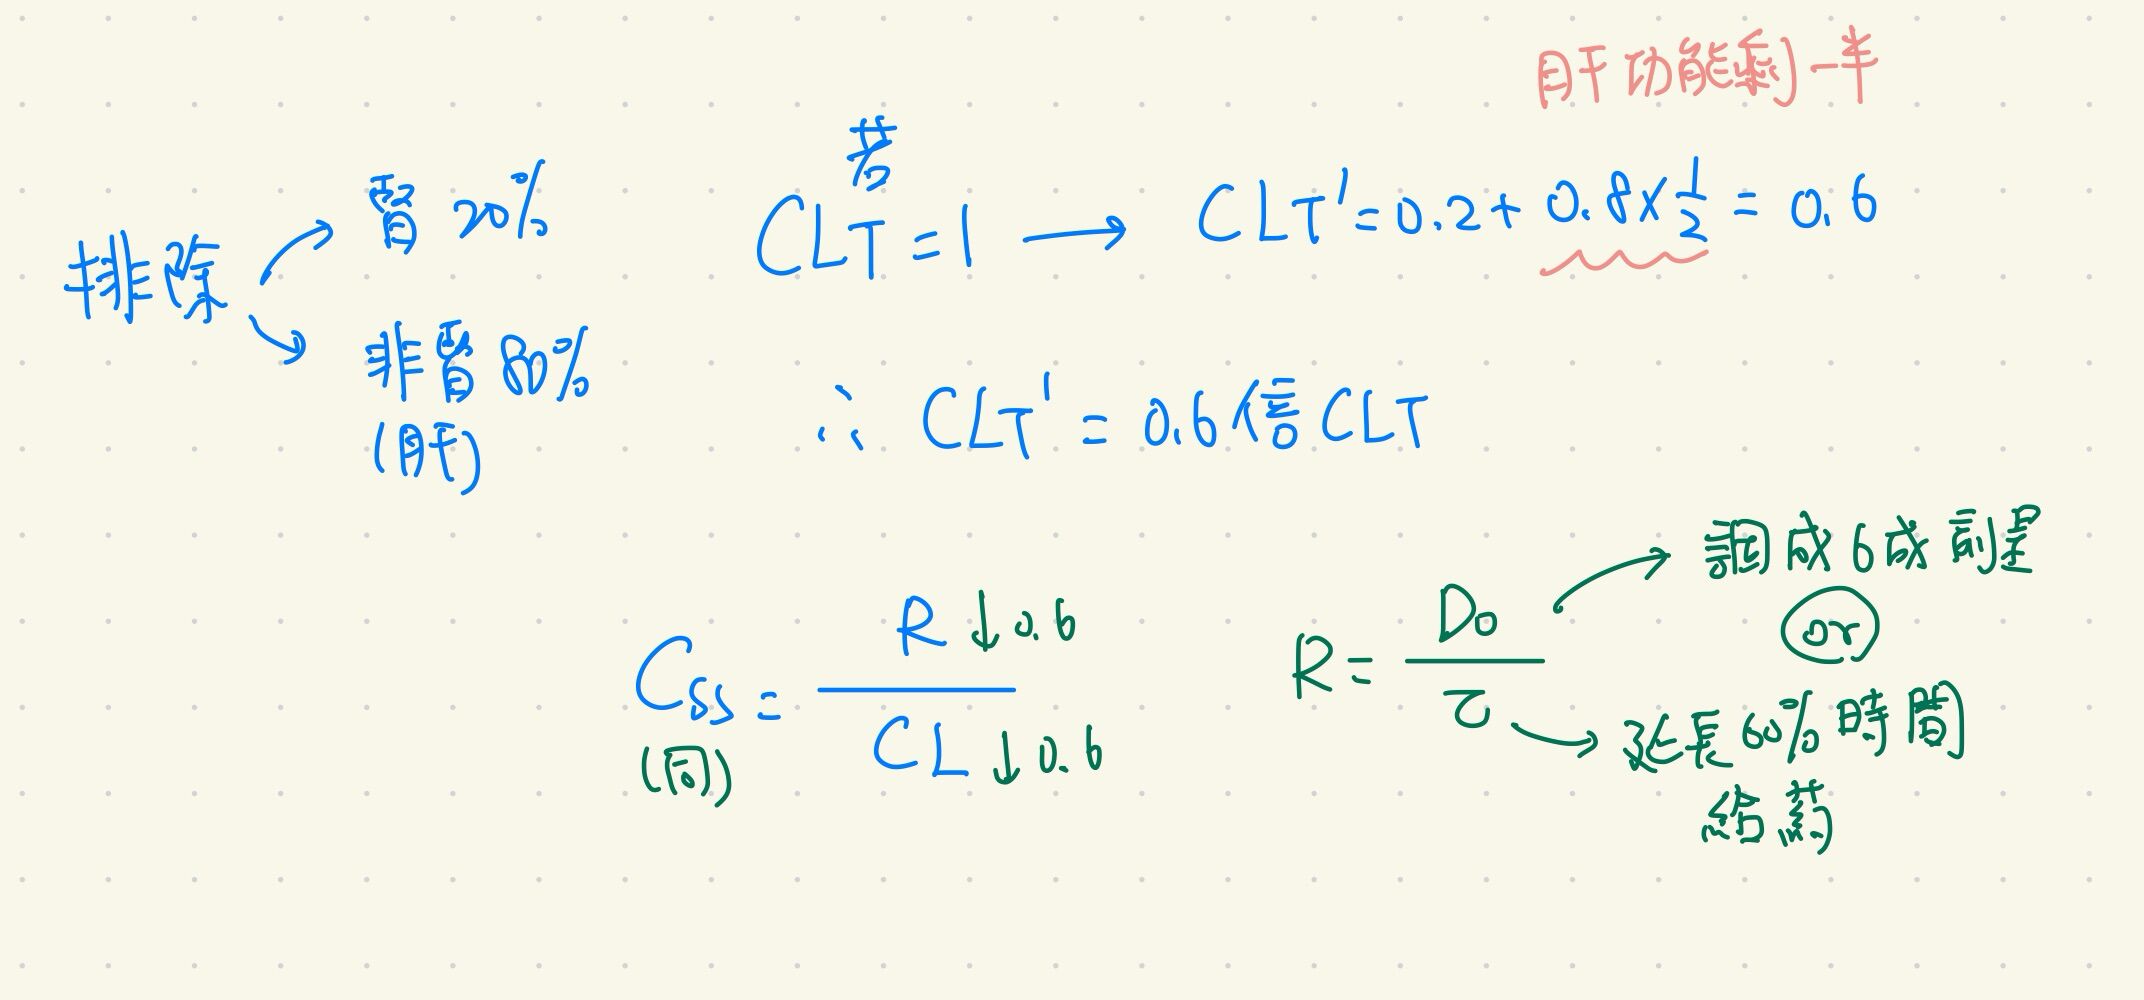 肝功能剩一半
排除
腎 20%
非腎 80%
(肝)
若
CLT=1 → CLT'=0.2+0.8×1/2=0.6
∴ CLT'=0.6倍CLT
Css=R↓0.6/CL↓0.6
(同)
R=D0/τ
調成6成劑量
or
延長60%時間
給藥